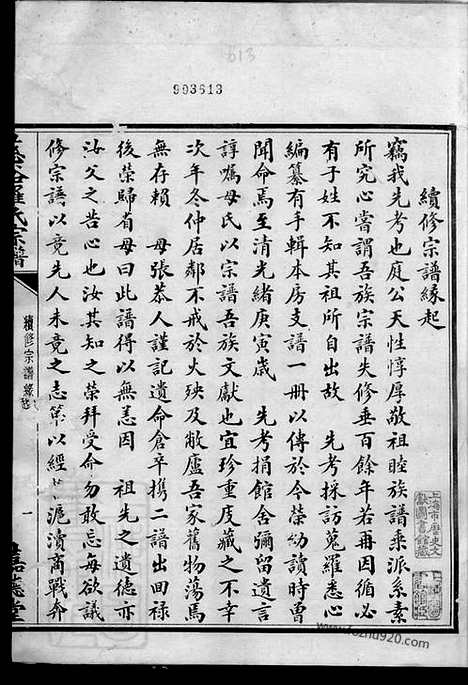 613
993613
續修宗譜緣起
竊我先考也庭公天性惇厚敬祖睦族譜乘派系素
所究心嘗謂吾族宗譜失修垂百餘年若再因循必
有子姓不知其祖所自出故 先考採訪蒐羅悉心
編纂有手輯本房支譜一册以傳於今榮幼讀時曾
聞命焉至清光緒庚寅歲 先考捐館舍彌留遺言
諄囑母氏以宗譜吾族文獻也宜珍重庋藏之不幸
次年冬仲居鄰不戒於火殃及敝廬吾家舊物蕩焉
無存賴 母張恭人謹記遺命倉卒攜二譜出回祿
後榮歸省母曰此譜得以無恙因 祖先之遺德亦
汝父之苦心也汝其知之榮拜受命勿敢忘每欲議
修宗譜以竟先人未竟之志第以經 滬瀆商戰奔
羅氏宗譜
續修宗譜緣起
一
上海市歷史文獻圖書館藏
920.com